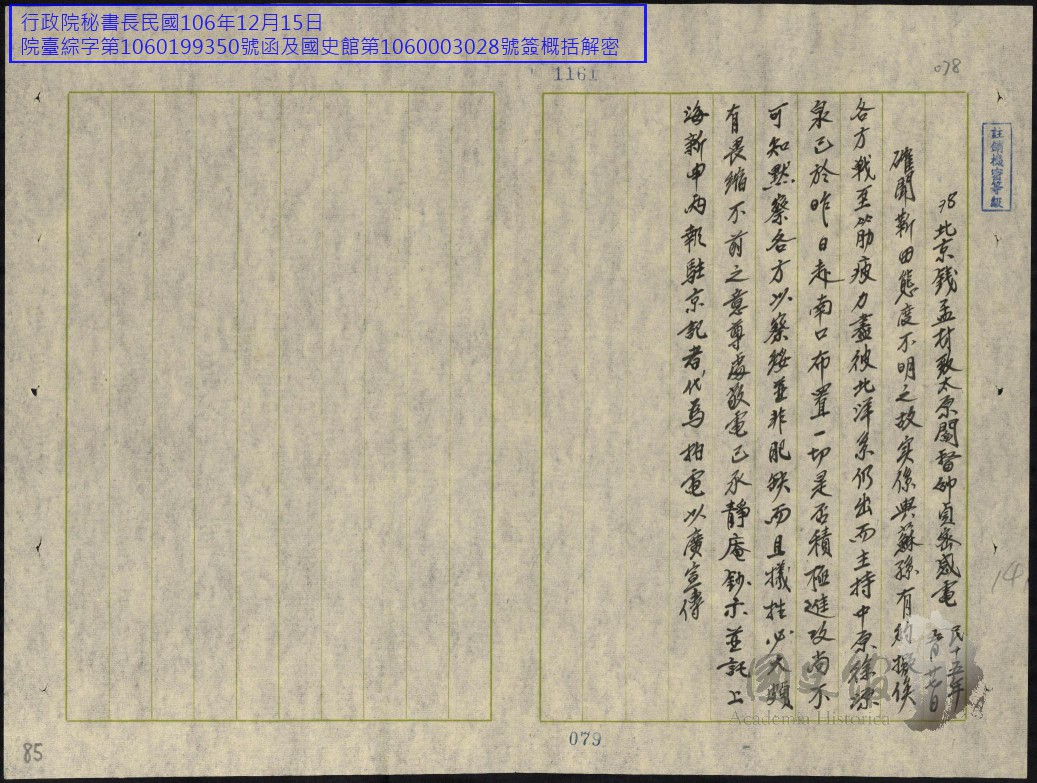 行政院秘書長民國106年12月15日
院臺綜字第1060199350號函及國史館第1060003028號簽概括解密
1161
078
註銷機密等級
78北京錢孟材致太原閻督卯貞密感電 民十五年五月廿七日
確聞靳田態度不明之故實係與蘇孫有約擬俟
各方戰至筋疲力盡彼北洋系仍出而主持中原徐源
泉已於昨日赴南口布置一切是否積極進攻尚不
可知默察各方以察綏並非肥缺而且犧牲必大頗
有畏縮不前之意尊處敬電已承靜庵鈔示並託上
海新申兩報駐京記者代為拍電以廣宣傳
國史館
Academia Historica
14
079
85